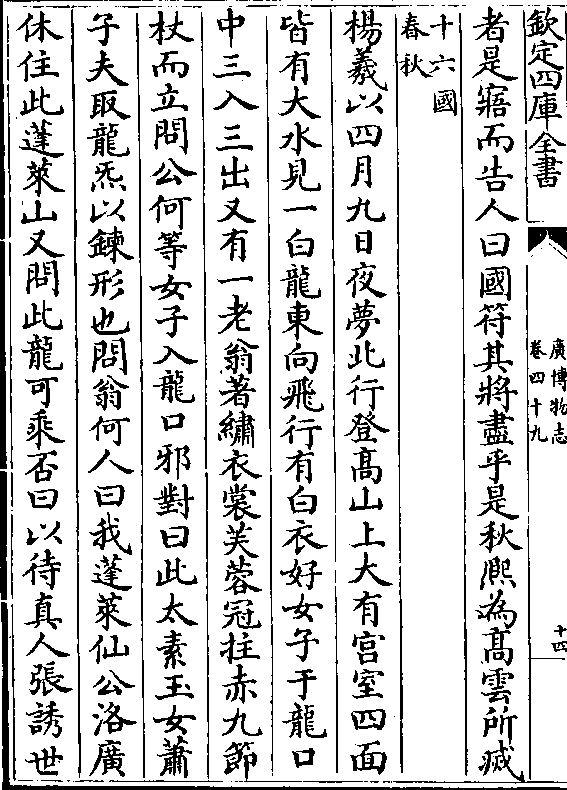 欽定四庫全書
廣博物志
卷四十九
十四
者是寤而告人曰國符其將盡乎是秋熈為髙雲所㓕
十六國
春秋
楊羲以四月九日夜夢北行登髙山上大有宫室四面
皆有大水見一白龍東向飛行有白衣好女子于龍口
中三入三出又有一老翁著繡衣裳芙蓉冠拄赤九節
杖而立問公何等女子入龍口邪對曰此太素玉女蕭
子夫取龍炁以鍊形也問翁何人曰我蓬萊仙公洛廣
休住此蓬萊山又問此龍可乘否曰以待真人張誘世